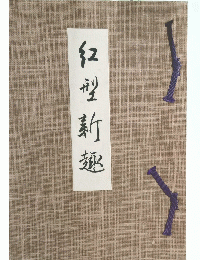 紅型新趣